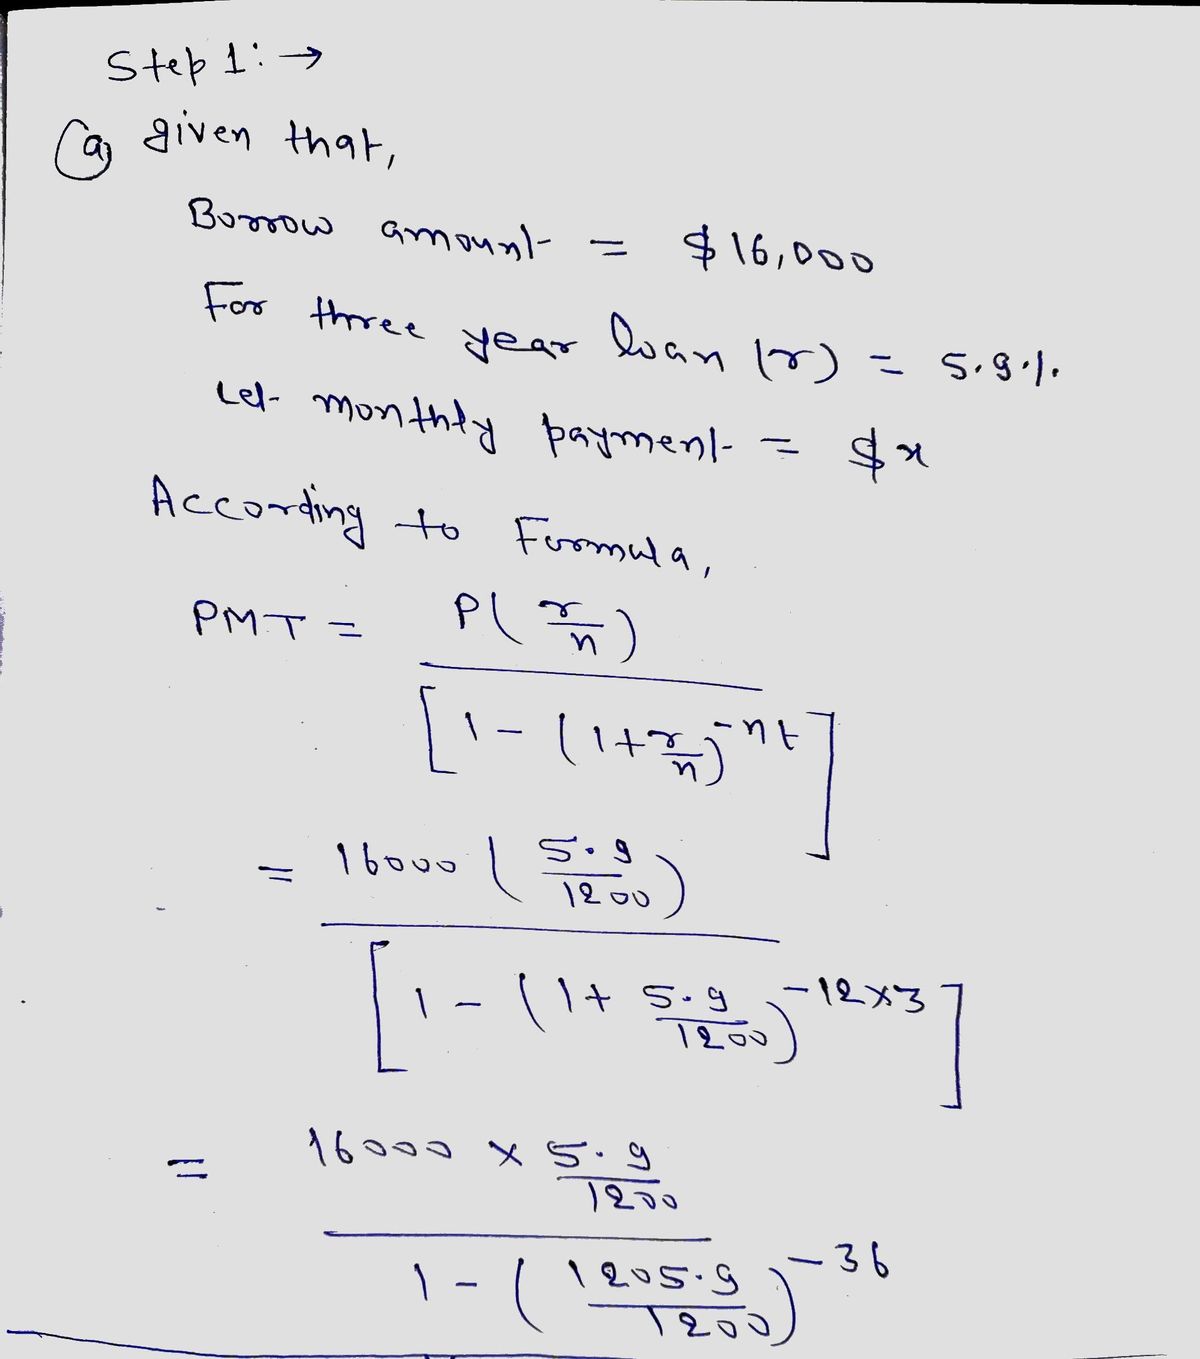 Step 1: →
(a) given that,
Borrow amount = $16,000
For three year loan (r) = 5.9%
Let monthly payment = $x
According to Formula,
PMT = P(r/n)
[1 - (1+r/n)^-nt]
= 16000 (5.9/1200)
[1 - (1+ 5.9/1200)^-12×3]
= 16000 × 5.9/1200
1 - (1205.9/1200)^-36